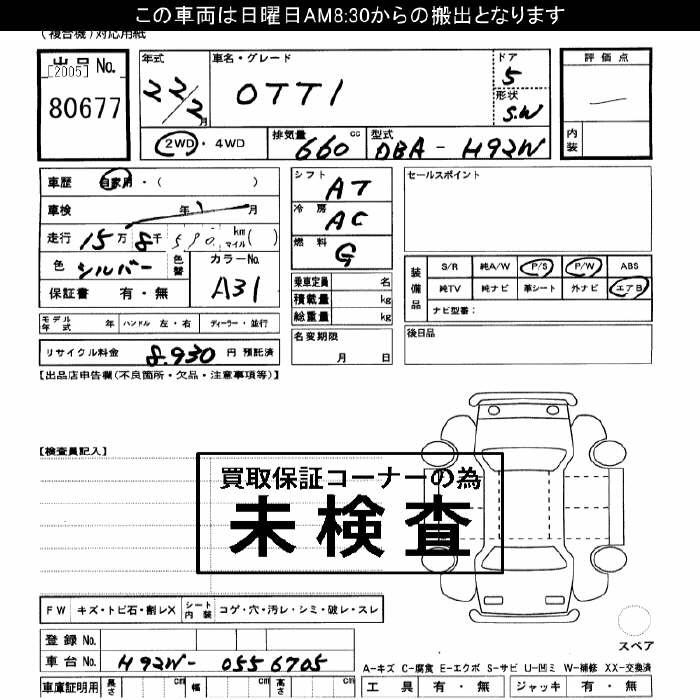 この車両は日曜日AM8:30からの搬出となります
(複合機)対応用紙
出品 No.
[2005]
80677
年式
22/2月
車名・グレード
OTTI
ドア
5
形状
S.W
2WD・4WD
排気量
660 cc
型式
DBA - H92W
評価点
内装
車歴 自家用・( )
車検 年 月
走行 15万 8千 590 km マイル( )
色 シルバー
色替
カラーNo.
A31
保証書 有・無
シフト
AT
冷房
AC
燃料
G
乗車定員 名
積載量 kg
総重量 kg
セールスポイント
装備品
S/R 純A/W P/S P/W ABS
純TV 純ナビ 革シート 外ナビ エアB
ナビ型番:
モデル年式 年 ハンドル 左・右 ディーラー・並行
名変期限
月 日
後日品
リサイクル料金 8.930 円 預託済
【出品店申告欄(不良箇所・欠品・注意事項等)】
【検査員記入】
買取保証コーナーの為
未検査
FW キズ・トビ石・割レX シート内装 コゲ・穴・汚レ・シミ・破レ・スレ
登録 No.
車台 No. H92W- 0556705
車庫証明用 長さ cm 幅 cm 高さ cm
スペア
A-キズ C-腐食 E-エクボ S-サビ U-凹ミ W-補修 XX-交換済
工具 有・無 ジャッキ 有・無